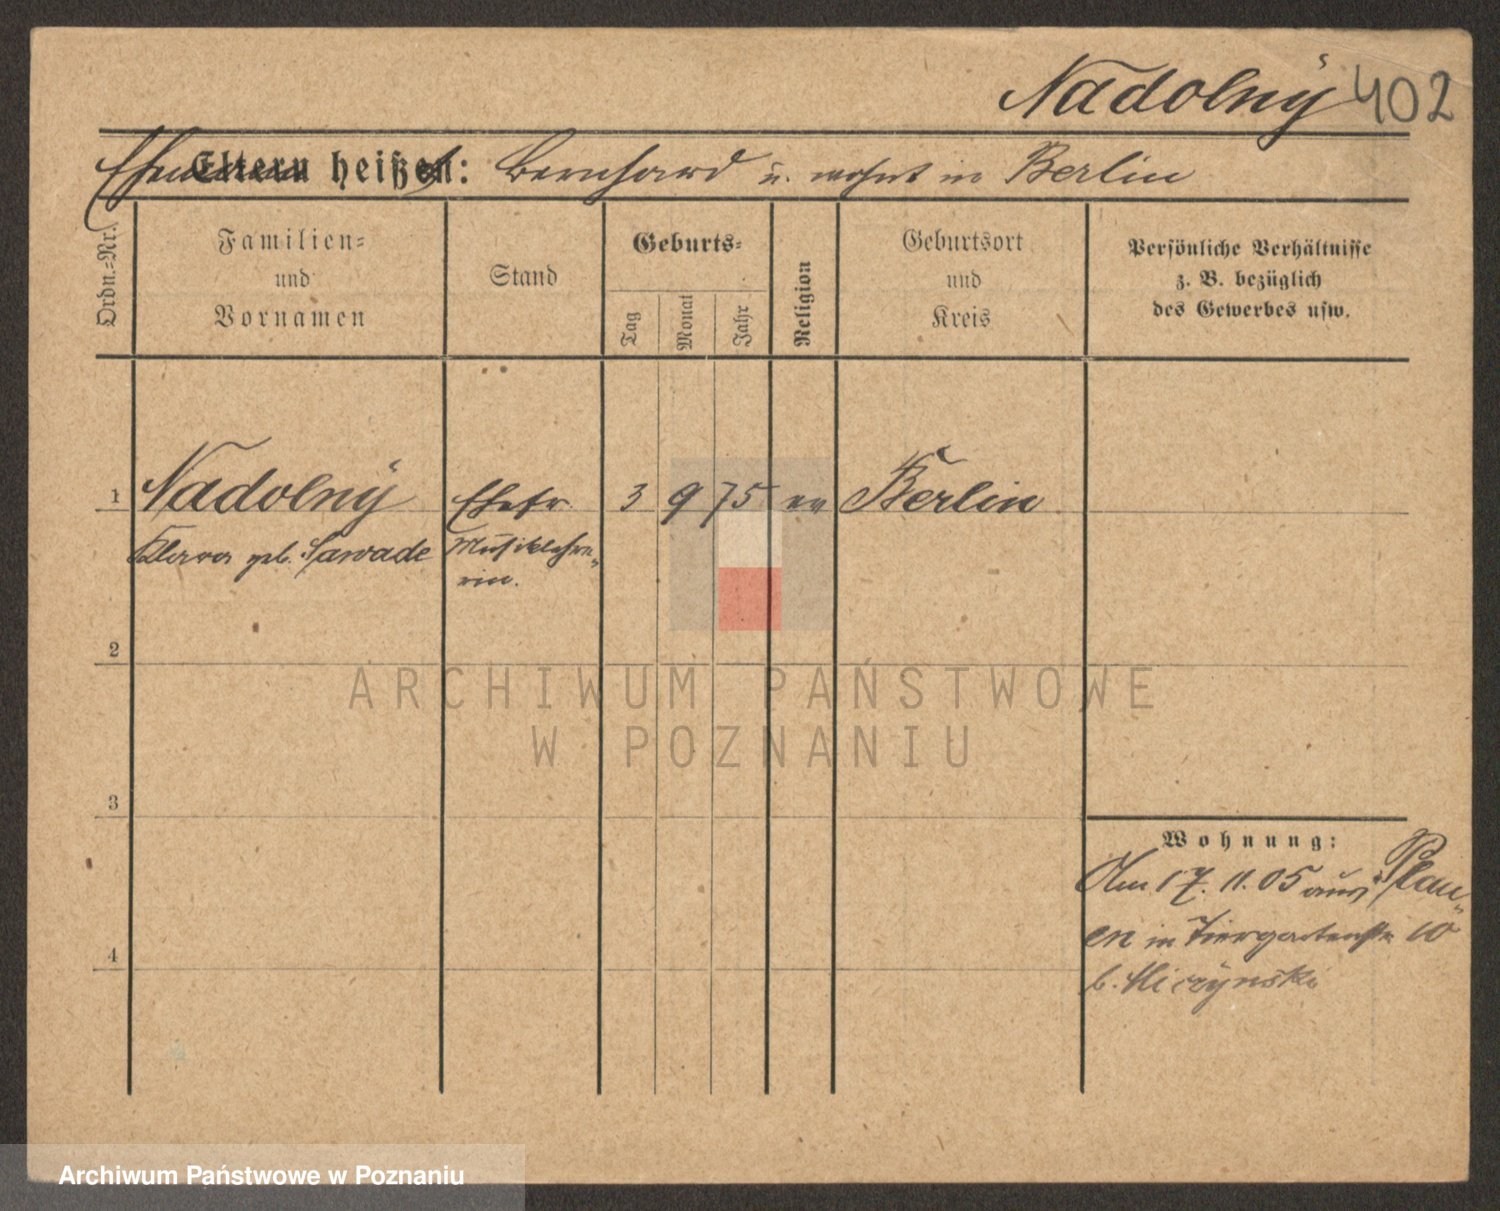 Nadolnÿ 402
Ehemann
Eltern heißen: Bernhard u. wohnt in Berlin
Ordn.=Nr.
Familien=
und
Vornamen
Stand
Geburts=
Tag
Monat
Jahr
Religion
Geburtsort
und
Kreis
Persönliche Verhältnisse
z. B. bezüglich
des Gewerbes usw.
1 Nadolnÿ Ehefr. 3 9 75 ev Berlin
Klara geb. Sawade Musiklehre-
rin.
2
3
4
Wohnung:
Am 17. 11. 05 aus Plau-
en in Tiergartenstr 10
b.
ARCHIWUM PAŃSTWOWE
W POZNANIU
Archiwum Państwowe w Poznaniu